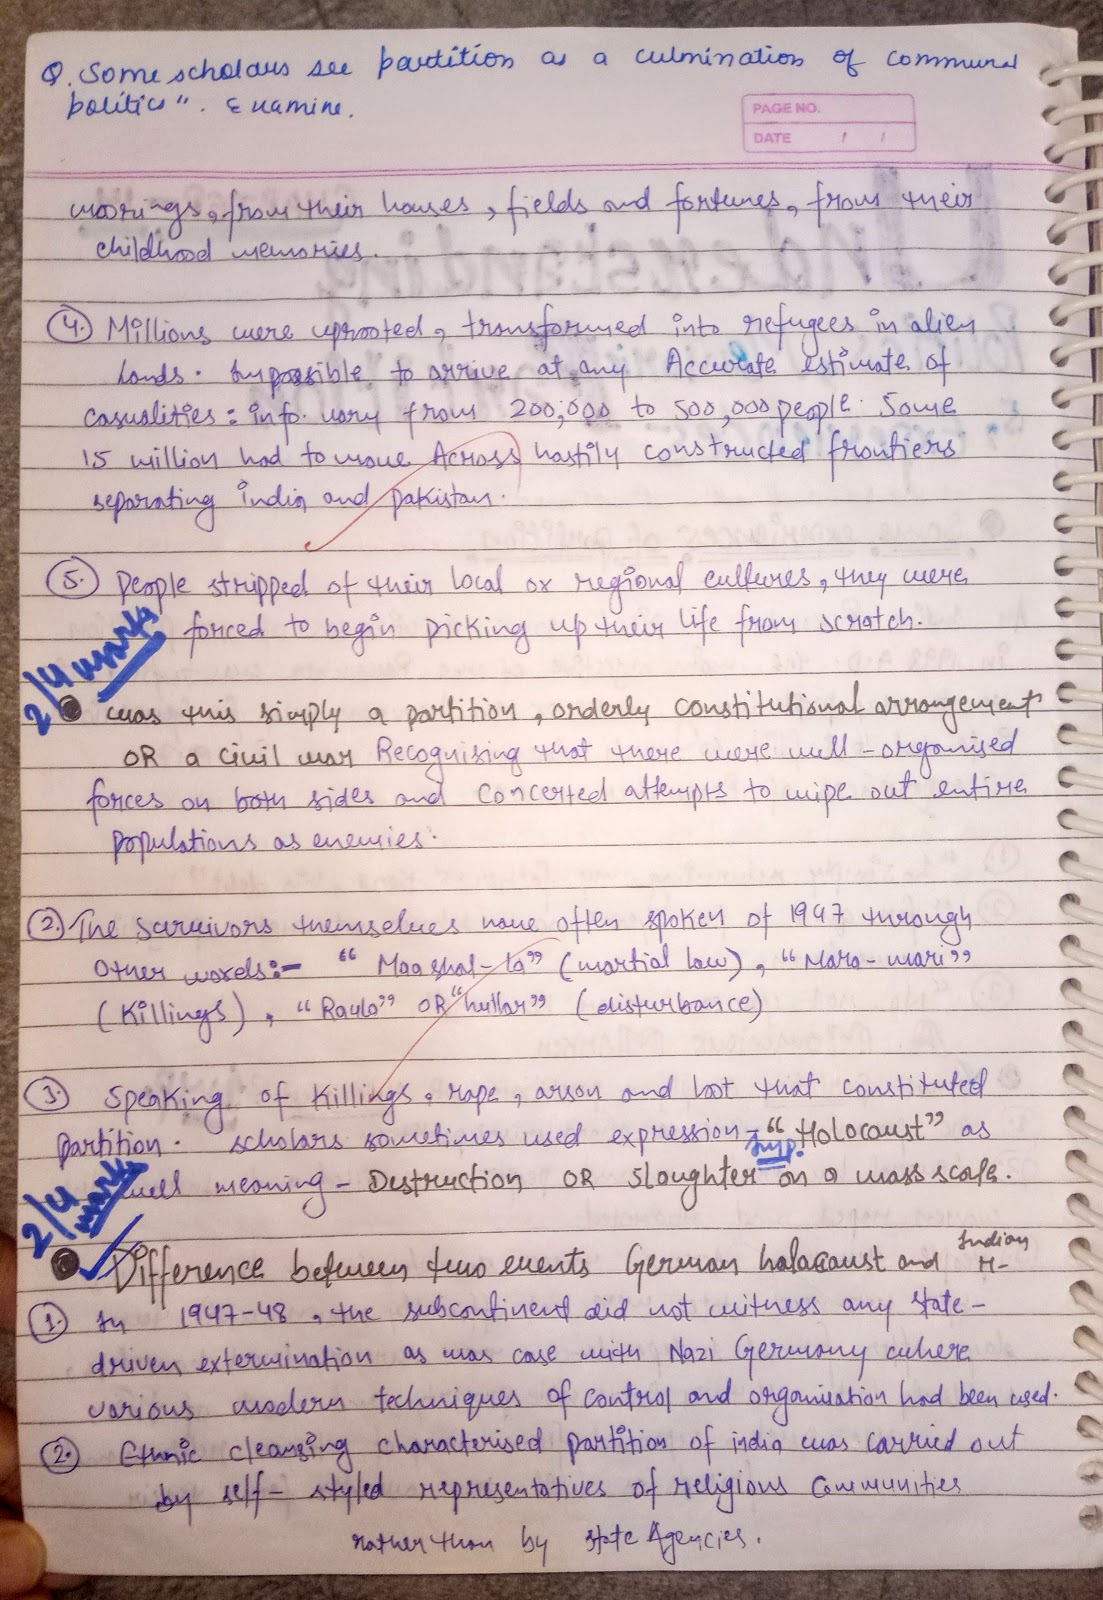 Q. Some scholars see partition as a culmination of communal
politics". Examine.
PAGE NO.
DATE / /
moorings, from their houses, fields and fortunes, from their
childhood memories.
4. Millions were uprooted, transformed into refugees in alien
lands. Impossible to arrive at any Accurate estimate of
casualities: info. vary from 200,000 to 500,000 people. Some
15 million had to move Across hastily constructed frontiers
separating india and pakistan.
5. People stripped of their local or regional cultures, they were
forced to begin picking up their life from scratch.
2/4 marks
● was this simply a partition, orderly constitutional arrangement
OR a civil war Recognising that there were well-organised
forces on both sides and concerted attempts to wipe out entire
populations as enemies.
2. The survivors themselves have often spoken of 1947 through
other words:- "Maashal-la" (martial law), "Mara-mari"
(Killings), "Raula" OR "hullar" (disturbance)
3. Speaking of killings, rape, arson and loot that constituted
partition. scholars sometimes used expression - "Holocaust" as
Imp.
well meaning - Destruction OR Slaughter on a mass scale.
2/4 marks
● Difference between two events German holocaust and Indian H-
1. In 1947-48, the subcontinent did not witness any state-
driven extermination as was case with Nazi Germany where
various modern techniques of control and organisation had been used.
2. Ethnic cleansing characterised partition of india was carried out
by self-styled representatives of religious communities
rather than by state Agencies.